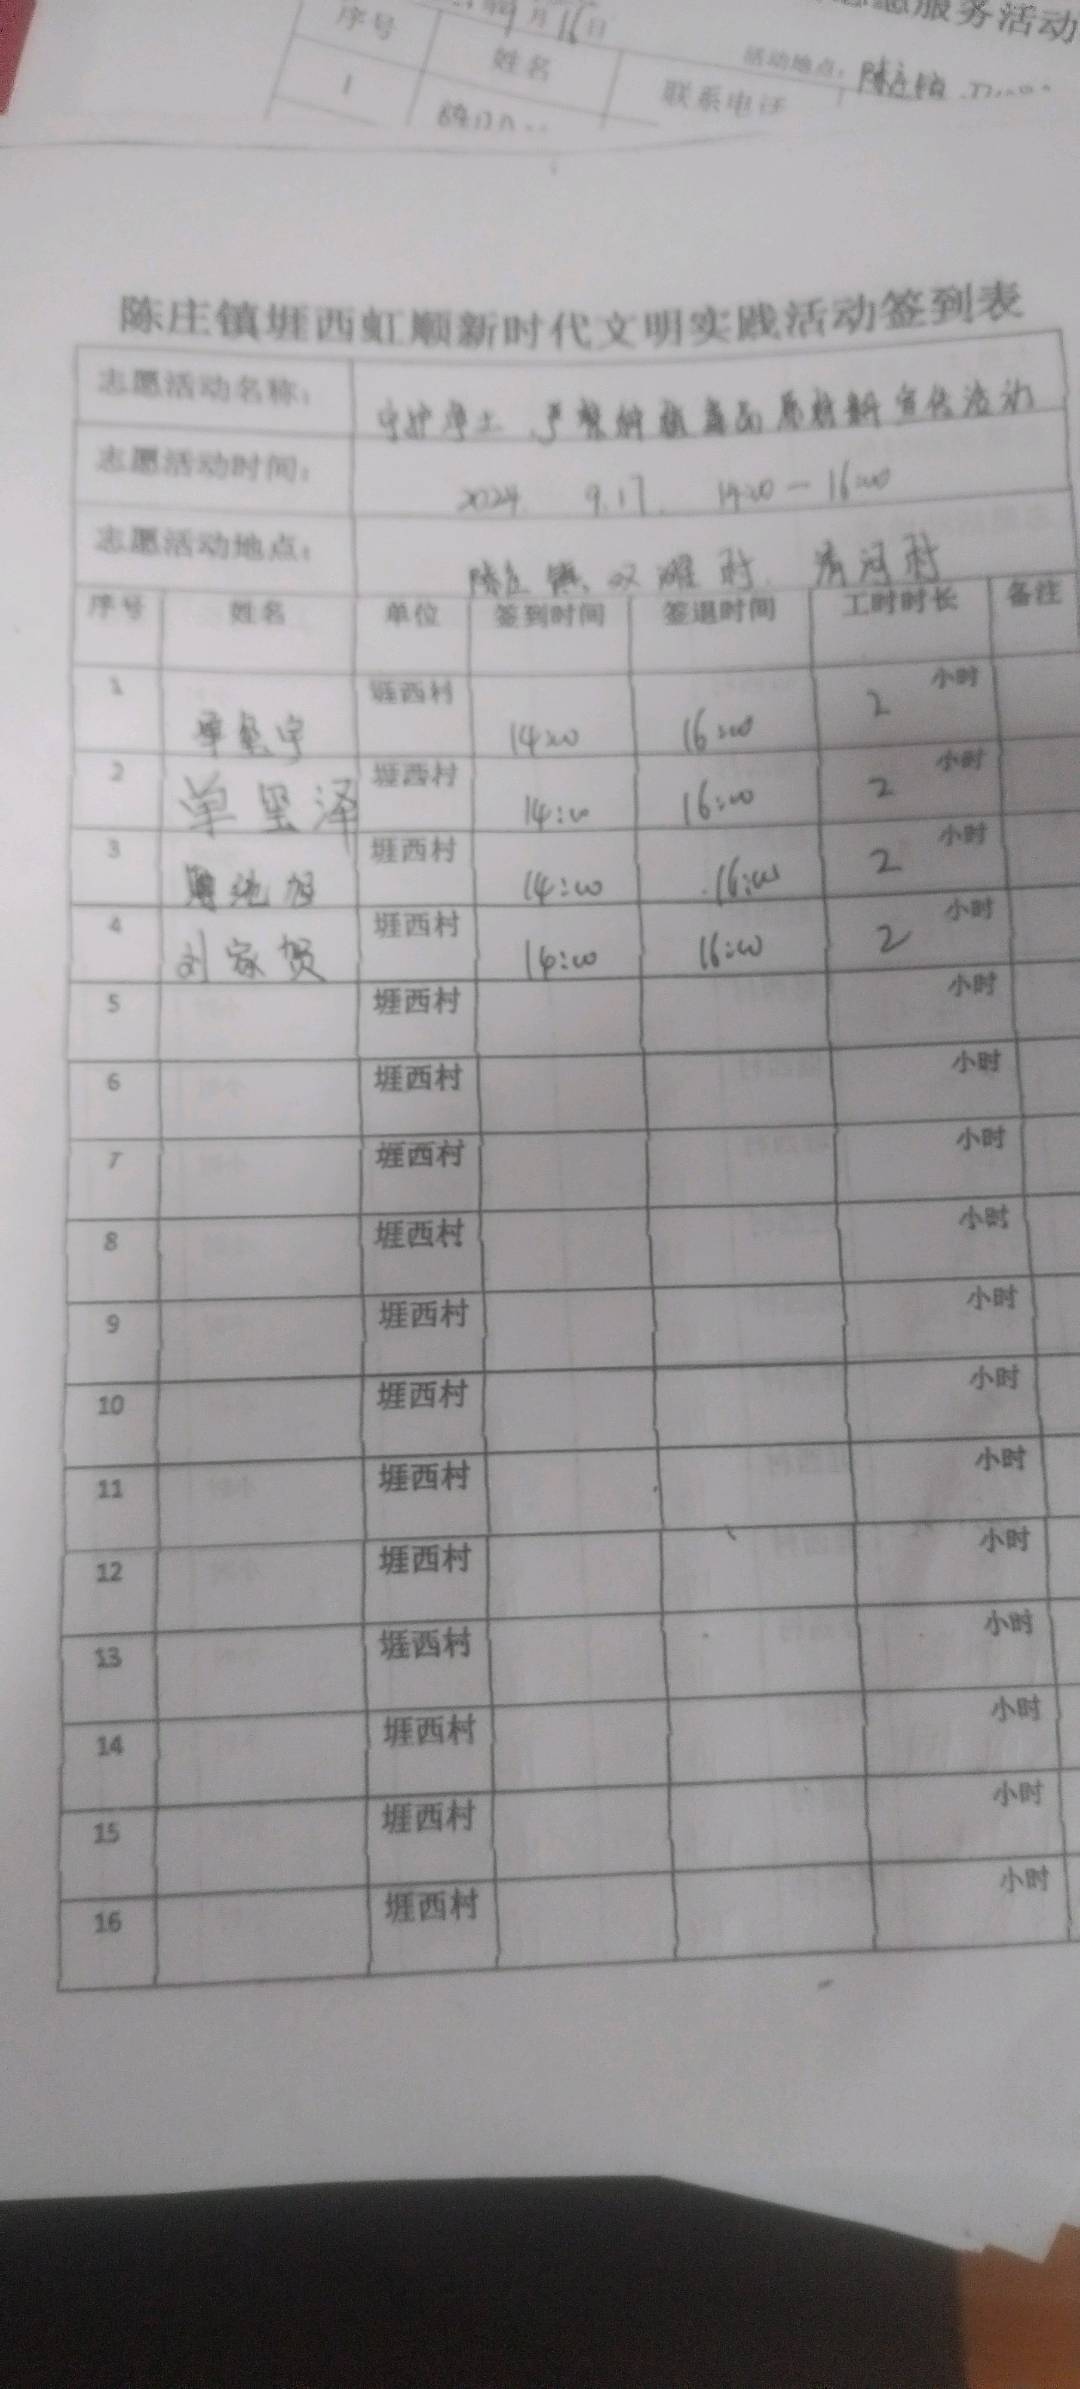 服务活动
9月16日
活动地点：陈庄镇
序号 姓名 联系电话
1
陈庄镇堐西虹顺新时代文明实践活动签到表
志愿活动名称： 守护净土、严禁种植毒品原植物宣传活动
志愿活动时间： 2024. 9.17. 14:00—16:00
志愿活动地点： 陈庄镇、双河村、清河村
序号 姓名 单位 签到时间 签退时间 工时时长 备注
1 堐西村 14:00 16:00 2 小时
2 单玺泽 堐西村 14:00 16:00 2 小时
3 堐西村 14:00 16:00 2 小时
4 刘家贺 堐西村 14:00 16:00 2 小时
5 堐西村 小时
6 堐西村 小时
7 堐西村 小时
8 堐西村 小时
9 堐西村 小时
10 堐西村 小时
11 堐西村 小时
12 堐西村 小时
13 堐西村 小时
14 堐西村 小时
15 堐西村 小时
16 堐西村 小时